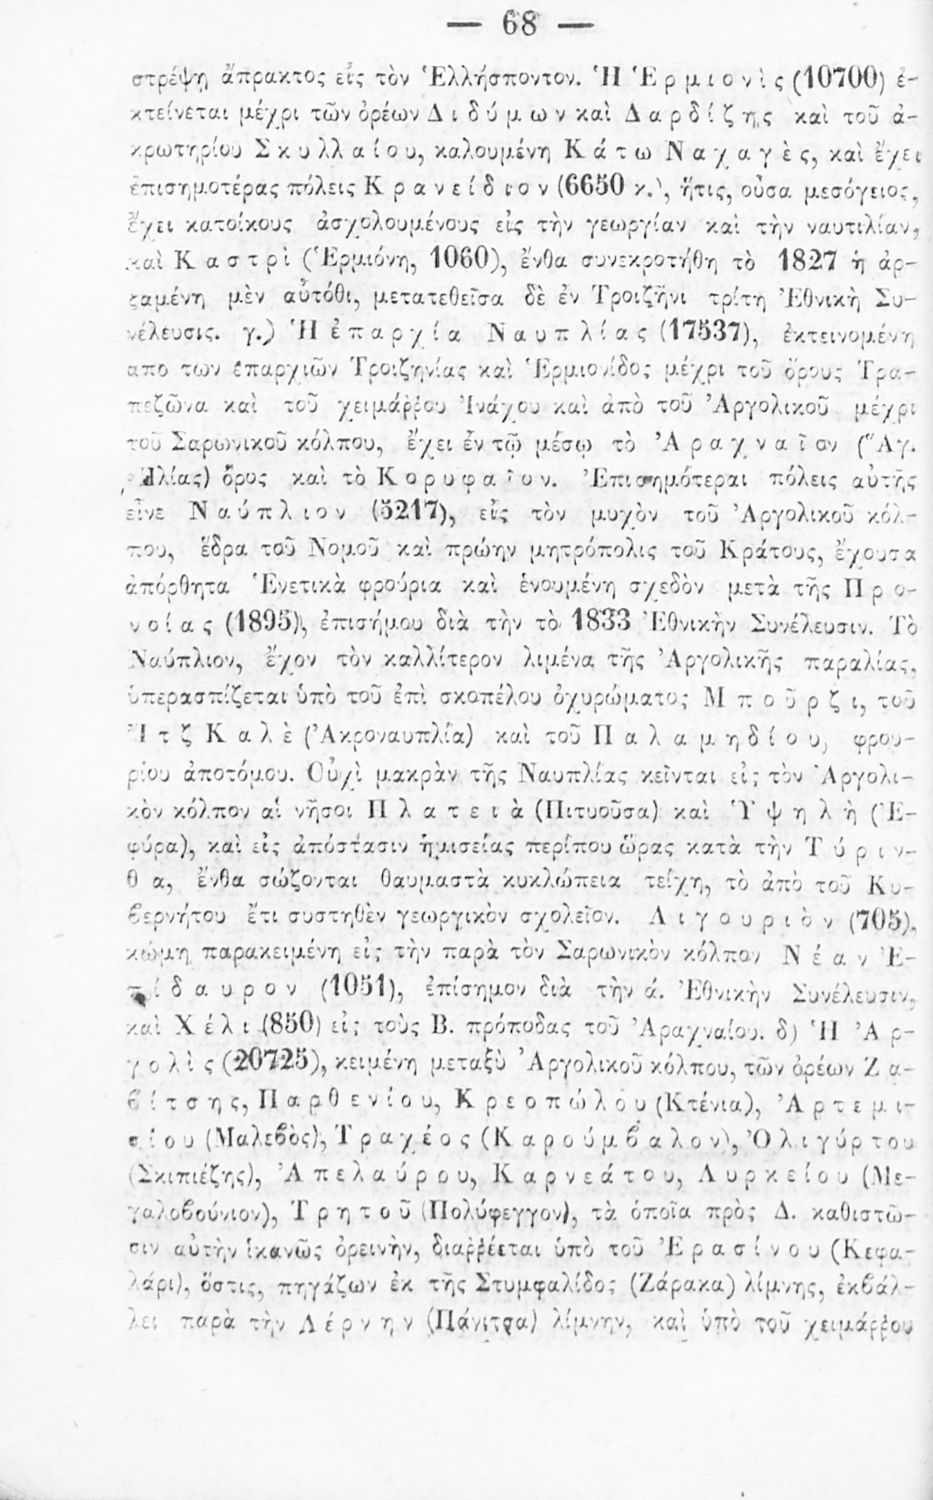 — 68 —
στρέψῃ ἄπρακτος εἰς τὸν Ἑλλήσποντον. Ἡ Ἑρμιονὶς (10700) ἐ-
κτείνεται μέχρι τῶν ὀρέων Διδύμων καὶ Δαρδίζης καὶ τοῦ ἀ-
κρωτηρίου Σκυλλαίου, καλουμένη Κάτω Ναχαγὲς, καὶ ἔχει
ἐπισημοτέρας πόλεις Κρανείδιον (6650 κ.), ἥτις, οὖσα μεσόγειος,
ἔχει κατοίκους ἀσχολουμένους εἰς τὴν γεωργίαν καὶ τὴν ναυτιλίαν,
καὶ Καστρὶ (Ἑρμιόνη, 1060), ἔνθα συνεκροτήθη τὸ 1827 ἡ ἀρ-
ξαμένη μὲν αὐτόθι, μετατεθεῖσα δὲ ἐν Τροιζῆνι τρίτη Ἐθνικὴ Συ-
νέλευσις. γ.) Ἡ ἐπαρχία Ναυπλίας (17537), ἐκτεινομένη
απο των ἐπαρχιῶν Τροιζηνίας καὶ Ἑρμιονίδος μέχρι τοῦ ὄρους Τρα-
πεζῶνα καὶ τοῦ χειμάῤῥου Ἰνάχου καὶ ἀπὸ τοῦ Ἀργολικοῦ μέχρι
τοῦ Σαρωνικοῦ κόλπου, ἔχει ἐν τῷ μέσῳ τὸ Ἀραχναῖον (Ἅγ.
Ἠλίας) ὄρος καὶ τὸ Κορυφαῖον. Ἐπισημότεραι πόλεις αὐτῆς
εἶνε Ναύπλιον (5217), εἰς τὸν μυχὸν τοῦ Ἀργολικοῦ κόλ-
που, ἕδρα τοῦ Νομοῦ καὶ πρώην μητρόπολις τοῦ Κράτους, ἔχουσα
ἀπόρθητα Ἑνετικὰ φρούρια καὶ ἑνουμένη σχεδὸν μετὰ τῆς Προ-
νοίας (1895), ἐπισήμου διὰ τὴν τὸ 1833 Ἐθνικὴν Συνέλευσιν. Τὸ
Ναύπλιον, ἔχον τὸν καλλίτερον λιμένα τῆς Ἀργολικῆς παραλίας,
ὑπερασπίζεται ὑπὸ τοῦ ἐπὶ σκοπέλου ὀχυρώματος Μποῦρζι, τοῦ
Ἲτζ Καλὲ (Ἀκροναυπλία) καὶ τοῦ Παλαμηδίου, φρου-
ρίου ἀποτόμου. Οὐχὶ μακρὰν τῆς Ναυπλίας κεῖνται εἰς τὸν Ἀργολι-
κὸν κόλπον αἱ νῆσοι Πλατειὰ (Πιτυοῦσα) καὶ Ὑψηλὴ (Ἐ-
φύρα), καὶ εἰς ἀπόστασιν ἡμισείας περίπου ὥρας κατὰ τὴν Τύριν-
θα, ἔνθα σώζονται θαυμαστὰ κυκλώπεια τείχη, τὸ ἀπὸ τοῦ Κυ-
βερνήτου ἔτι συστηθὲν γεωργικὸν σχολεῖον. Λιγουριὸν (705),
κώμη παρακειμένη εἰς τὴν παρὰ τὸν Σαρωνικὸν κόλπον Νέαν Ἐ-
πίδαυρον (1051), ἐπίσημον διὰ τὴν ά. Ἐθνικὴν Συνέλευσιν,
καὶ Χέλι (850) εἰς τοὺς Β. πρόποδας τοῦ Ἀραχναίου. δ) Ἡ Ἀρ-
γολὶς (20725), κειμένη μεταξὺ Ἀργολικοῦ κόλπου, τῶν ὀρέων Ζα-
βίτσης, Παρθενίου, Κρεοπώλου (Κτένια), Ἀρτεμι-
σίου (Μαλεβὸς), Τραχέος (Καρούμβαλον), Ὀλιγύρτου
(Σκιπιέζης), Ἀπελαύρου, Καρνεάτου, Λυρκείου (Με-
γαλοβούνιον), Τρητοῦ (Πολύφεγγον), τὰ ὁποῖα πρὸς Δ. καθιστῶ-
σιν αὐτὴν ἱκανῶς ὀρεινὴν, διαῤῥέεται ὑπὸ τοῦ Ἐρασίνου (Κεφα-
λάρι), ὅστις, πηγάζων ἐκ τῆς Στυμφαλίδος (Ζάρακα) λίμνης, ἐκβάλ-
λει παρὰ τὴν Λέρνην (Πάνιτσα) λίμνην, καὶ ὑπὸ τοῦ χειμάῤῥου